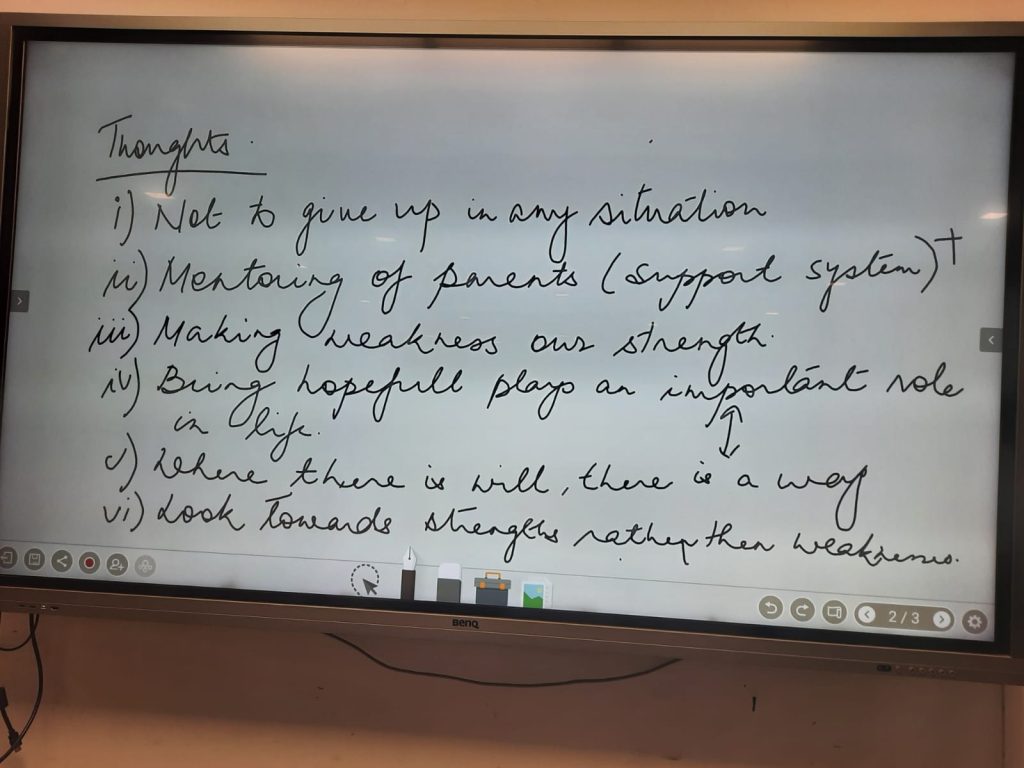 Thoughts
i) Not to give up in any situation
ii) Mentoring of parents (support system)+
iii) Making weakness our strength.
iv) Being hopefull plays an important role
in life.
v) Where there is will, there is a way
vi) Look Towards strengths rather then weaknesses.
2/3
BenQ